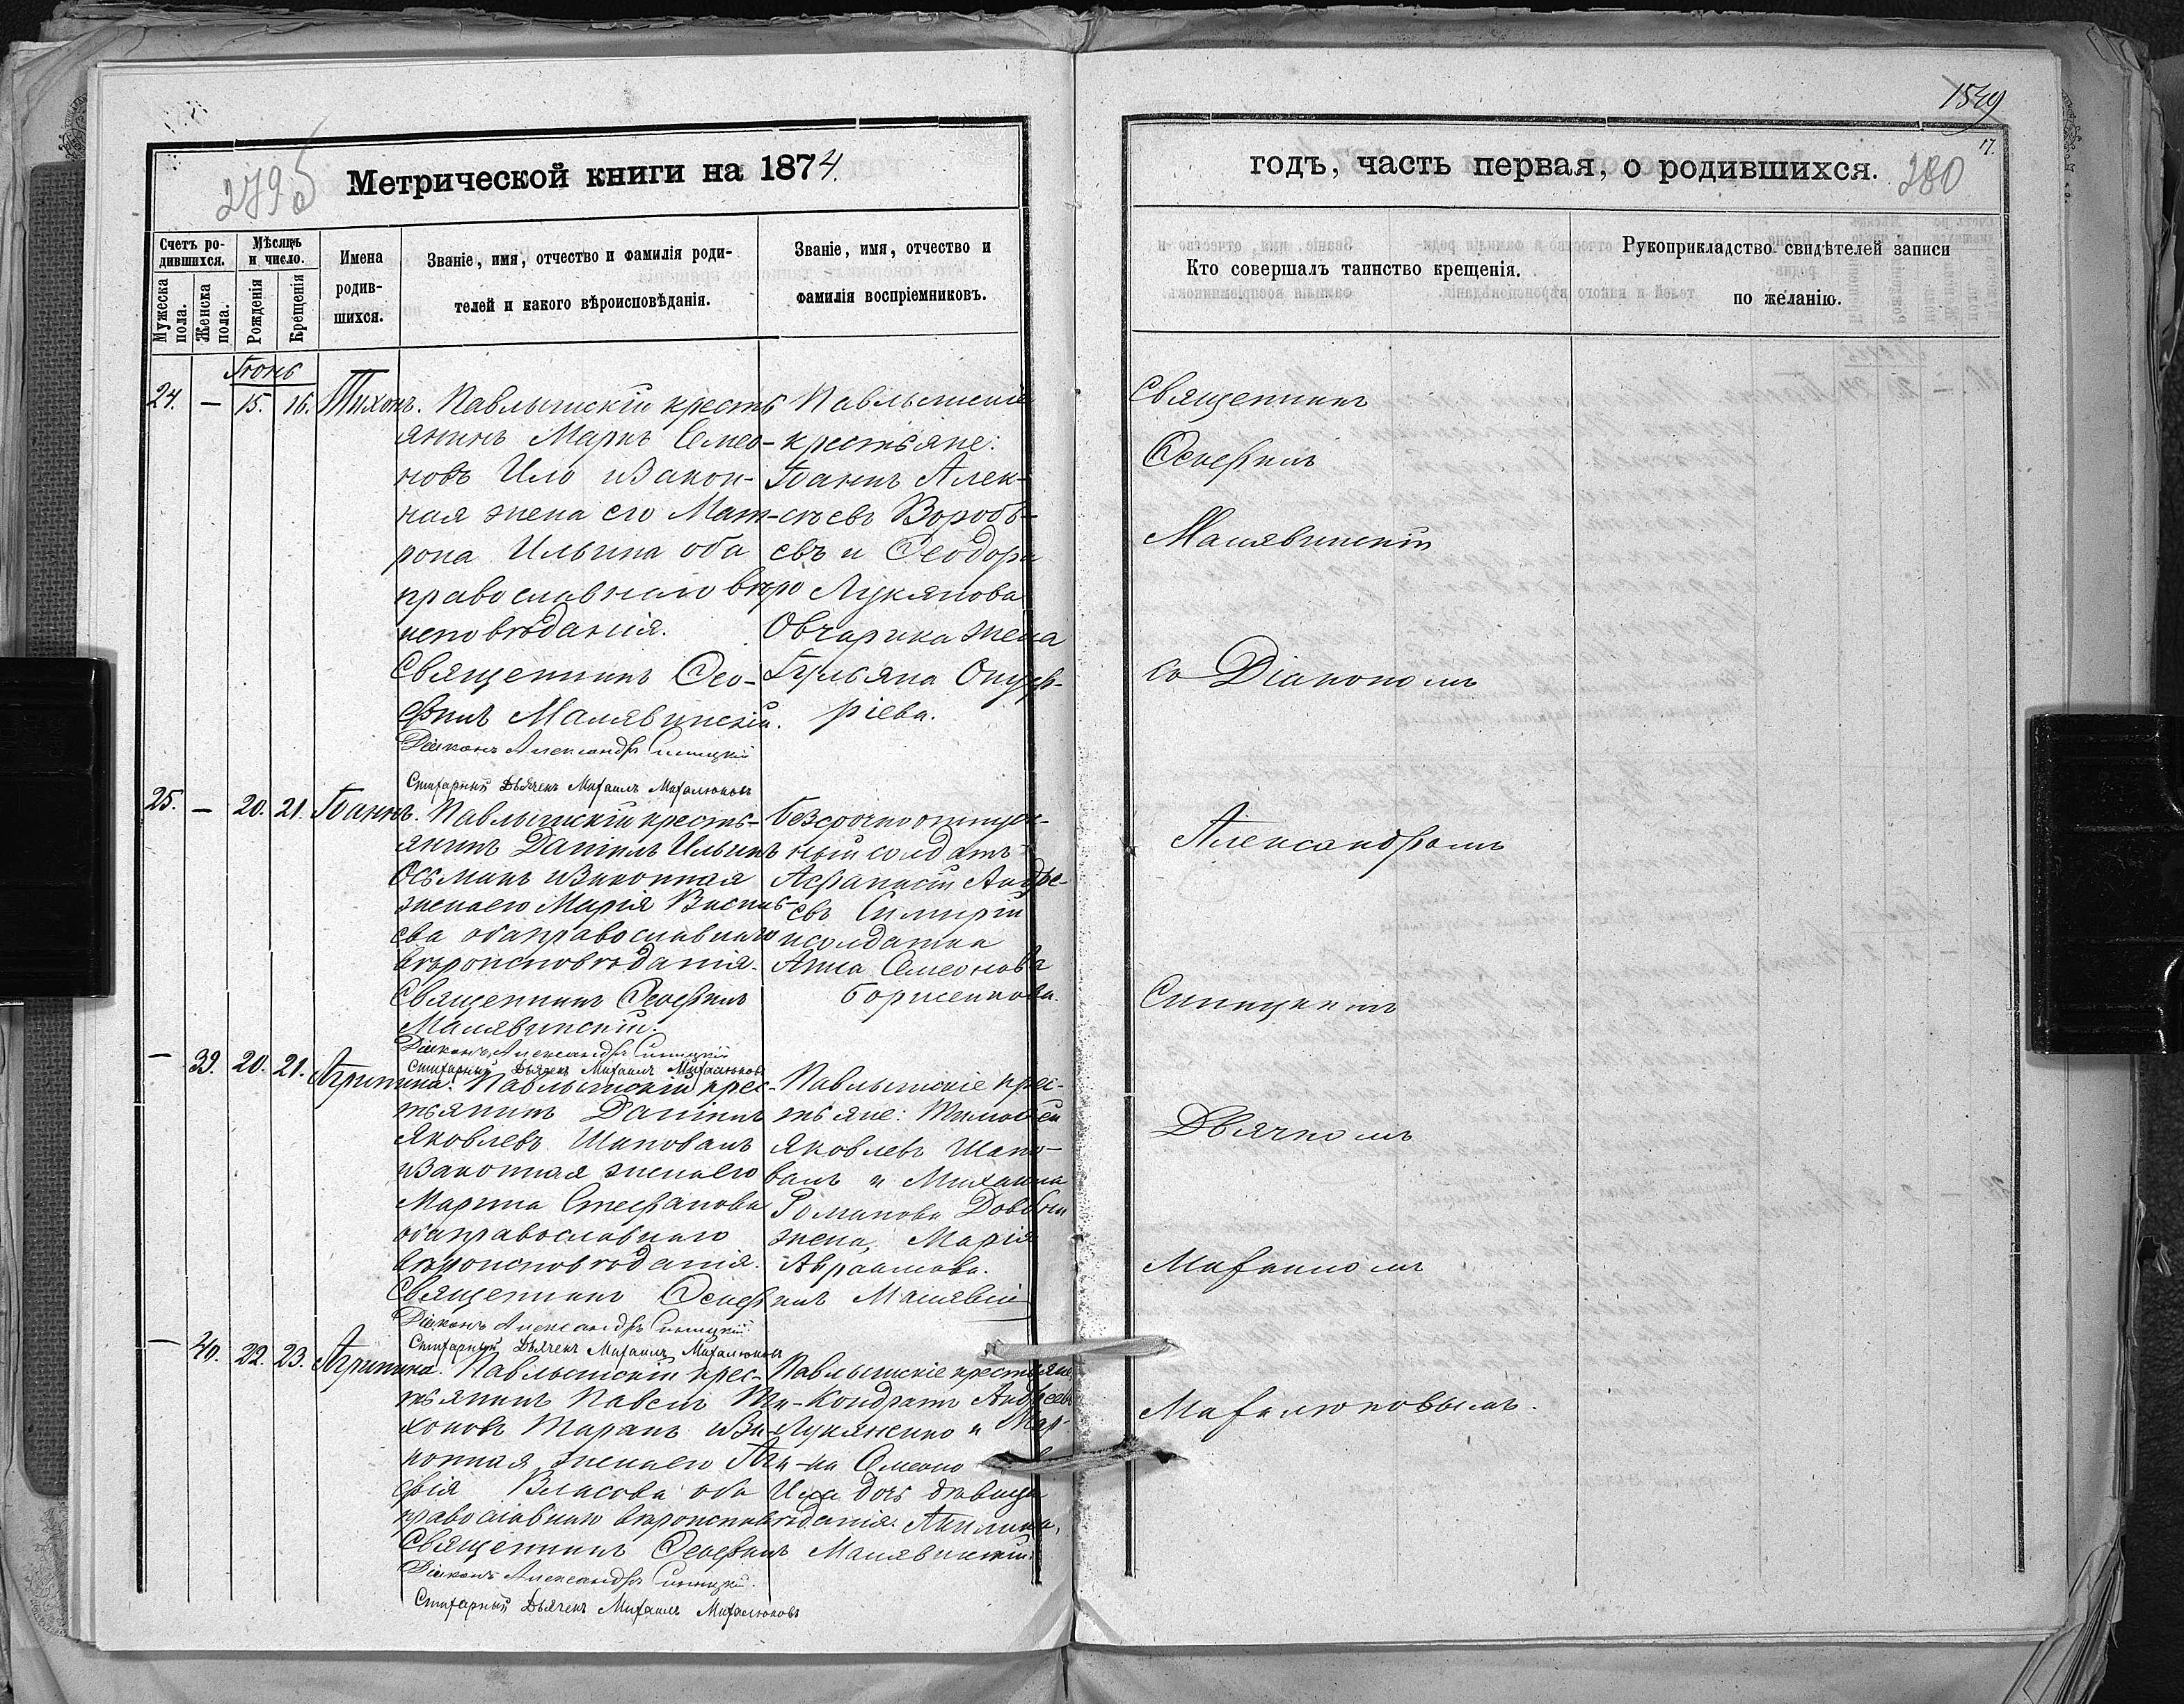 279б
Метрической книги на 1874.
Счетъ родившихся.
Мужеска пола.
Женска пола.
Мѣсяцъ и число.
Рожденія
Крещенія
Имена родившихся.
Званіе, имя, отчество и фамилія родителей и какого вѣроисповѣданія.
Званіе, имя, отчество и фамилія воспріемниковъ.
Іюнь
24. — 15. 16. Тихонъ.
Павлышскій кресть
янинъ Маркъ Семео-
новъ Ило изакон-
ная жена его Мат-
рона Ильина оба
православнаго вѣро
исповѣданія.
Священникъ Ѳео-
филъ Малявинскій.
Діаконъ Александръ Синицкій
Стихарный Дьячекъ Михаилъ Михалюковъ
Павлышскіе
крестьяне:
Іоаннъ Алек-
сѣевъ Вороб-
евъ и Ѳеодора
Лукянова
Овчарика жена
Іульяна Онуф-
ріева.
25. — 20. 21. Іоаннъ.
Павлышскій кресть-
янинъ Даніилъ Ильинъ
Осьмакъ изаконная
женаего Марія Василь-
ева обаправославнаго
вѣроисповѣданія.
Священникъ Ѳеофилъ
Малявинскій.
Діаконъ Александръ Синицкій
Стихарный Дьячекъ Михаилъ Михалюковъ
безсрочноотпуск-
ный солдатъ
Аѳанасій Андре-
евъ
исолдатка
Анна Семеонова
Борисенкова.
— 39. 20. 21. Агрипина.
Павлышскій крес-
тьянинъ Даніилъ
Яковлевъ Шаповалъ
изаконная женаего
Марина Стефанова
обаправославнаго
вѣроисповѣданія.
Священникъ Ѳеофилъ Малявин
Діаконъ Александръ Синицкій
Стихарный Дьячекъ Михаилъ Михалюковъ
Павлышскіе крес-
тьяне: Тимоѳей
Яковлевъ Шапо-
валъ и Михаила
Романова Довбни
жена, Марія
Авраамова.
— 40. 22. 23. Агрипина.
Павлышскій крес-
тьянинъ Павелъ Ти-
хоновъ Таранъ иза-
конная женаего Ага-
фія Власова оба
православнаго вѣроисповѣданія.
Священникъ Ѳеофилъ Малявинскій.
Діаконъ Александръ Синицкій.
Стихарный Дьячекъ Михаилъ Михалюковъ
Павлышскіе крестьяне
Кондратъ Андреевъ
Лукяненко и Мар-
ка Семеоно
Ила дочь дѣвица
Акилина.
1549
17.
280
годъ, часть первая, о родившихся.
Кто совершалъ таинство крещенія.
Рукоприкладство свидѣтелей записи по желанію.
Священникъ
Ѳеофилъ
Малявинскій
со Діакономъ
Александромъ
Синицкимъ
Дьячкомъ
Михаиломъ
Михалюковымъ.